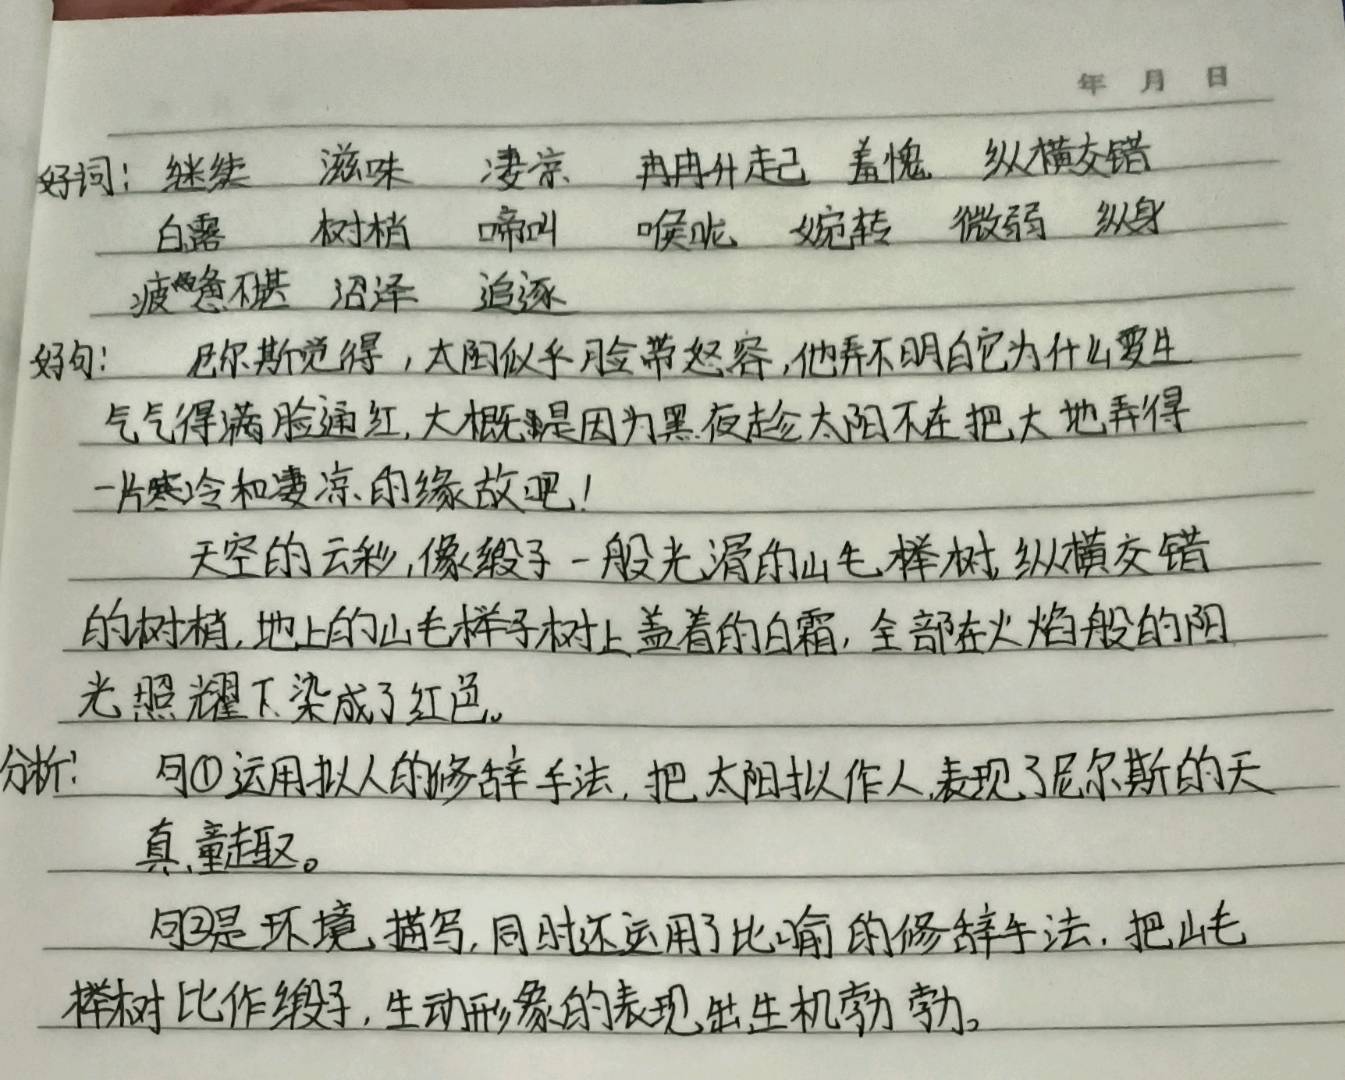 年 月 日
好词： 继续 滋味 凄凉 冉冉升起 羞愧 纵横交错
白露 树梢 啼叫 喉咙 婉转 微弱 纵身
疲惫不堪 沼泽 追逐
好句： 尼尔斯觉得，太阳似乎脸带怒容，他弄不明白它为什么要生
气气得满脸通红，大概是因为黑夜趁太阳不在把大地弄得
一片寒冷和凄凉的缘故吧！
天空的云彩，像缎子一般光滑的山毛榉树，纵横交错
的树梢，地上的山毛榉子树上盖着的白霜，全部在火焰般的阳
光照耀下染成了红色。
分析： 句①运用拟人的修辞手法，把太阳拟作人，表现了尼尔斯的天
真、童趣。
句②是环境描写，同时还运用了比喻的修辞手法，把山毛
榉树比作缎子，生动形象的表现出生机勃勃。